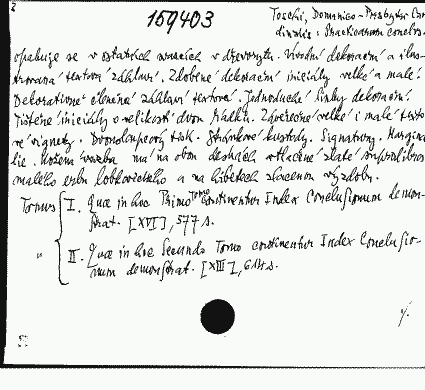 2
159403
Toschi, Dominico - Presbyter Car
dinalis: Practicarum conclus.
opakuje se v ostatních svazcích v dřevorytu. Úvodní dekorační a ilus-
trovaná textová záhlaví. Zdobené dekorační iniciály velké a malé.
Dekorativně členěná záhlaví textová. Jednoduché linky dekorační.
Tištěné iniciály o velikosti dvou řádků. Závěrečné velké i malé texto
vé vignety. Dvousloupcový tisk. Stránkové kustody. Signatury. Margina
lie. Kožená vazba má na obou deskách vtlačené zlaté supralibros
malého erbu lobkovického a na hřbetech zlacenou výzdobu.
Tomus I. Quae in hoc Primo Tomo continentur Index Conclusionum demon-
strat. [XVI], 577 s.
" II. Quae in hoc Secundo Tomo continentur Index Conclusio-
num demonstrat. [XIII], 614 s.